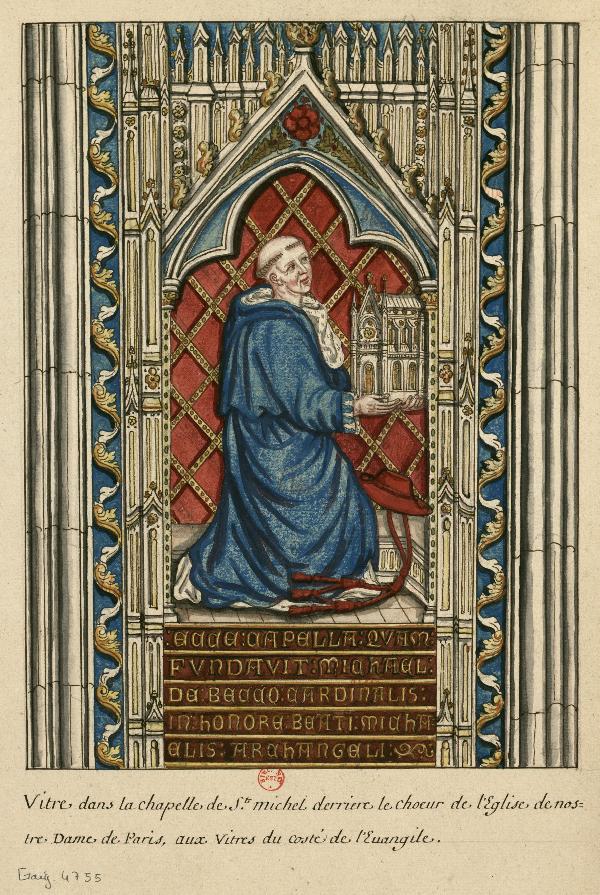 ECCE:CAPELLA:QVAM:
FVNDAVIT:MICHAEL:
DE:BECCO:CARDINALIS:
IN:HONORE:BEATI:MICHA
ELIS:ARCHANGELI:
Vitre dans la chapelle de S.te michel derriere le choeur de l'Eglise de nos=
tre Dame de Paris, aux Vitres du costé de l'Euangile.
Gaig. 4755